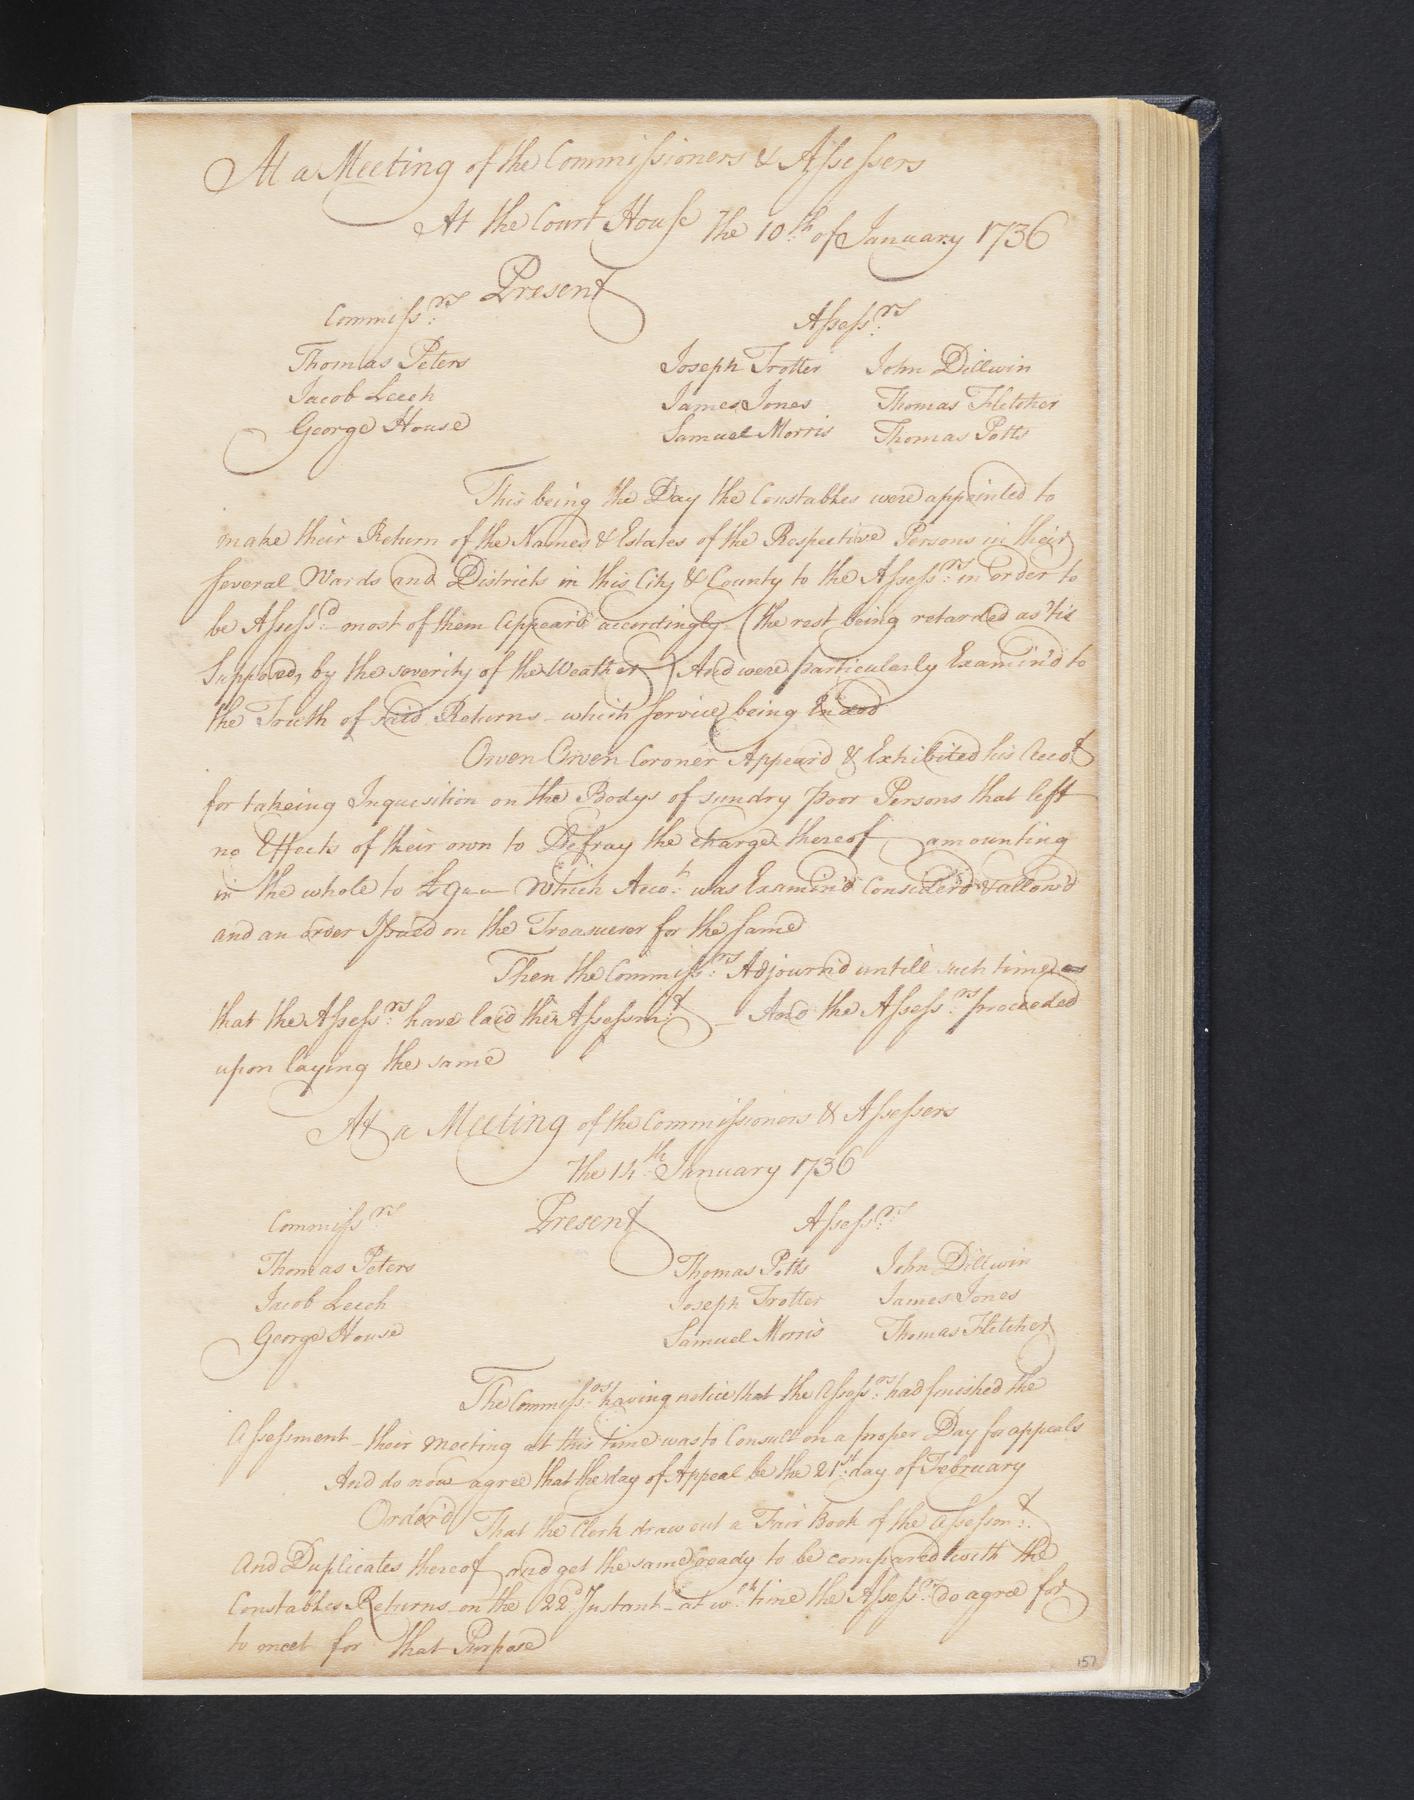 At a Meeting of the Commissioners & Assessers
At the Court House the 10th of January 1736
Present
Commissrs Assessrs
Thomas Peters Joseph Trotter John Dillwin
Jacob Leech James Jones Thomas Fletcher
George House Samuel Morris Thomas Potts
This being the Day the Constables were appointed to
make their Return of the Names & Estates of the Respective Persons in their
several Wards and Districts in this City & County to the Assessrs in order to
be Assessd most of them Appear'd accordingly (the rest being retarded as 'tis
Supposed, by the severity of the Weather) And were particularly Examin'd to
the Truth of said Returns - which service being Ended
Owen Owen Coroner Appear'd & Exhibited his Accot
for takeing Inquisition on the Bodys of sundry poor Persons that left
no Effects of their own to Defray the charge thereof amounting
in the whole to £9 - - Which Accot was Examin'd Consider'd & allow'd
and an order Issued on the Treasurer for the same
Then the Commissrs Adjourn'd untill such time as
that the Assessrs have laid their Assessmt - And the Assessrs proceeded
upon laying the same
At a Meeting of the Commissioners & Assessers
the 14th January 1736
Commissrs Present Assessrs
Thomas Peters Thomas Potts John Dillwin
Jacob Leech Joseph Trotter James Jones
George House Samuel Morris Thomas Fletcher
The Commissrs having notice that the Assessrs had finished the
Assessment - their Meeting at this time was to Consult on a proper Day for appeals
And do now agree that the day of Appeal be the 21st day of February
Order'd That the Clerk draw out a Fair Book of the Assessmt
And Duplicates thereof and get the same ready to be compared with the
Constables Returns on the 22d Instant - at wch time the Assessrs do agree for
to meet for that Purpose
157